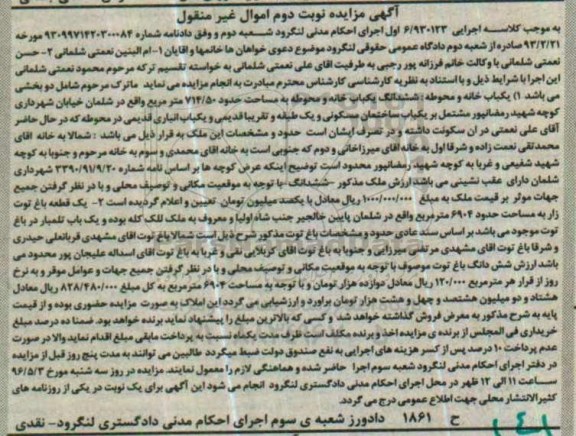 آگهی مزایده نوبت دوم اموال غیر منقول
به موجب کلاسه اجرایی ۶/۹۳۰۱۲۳ اول اجرای احکام مدنی لنگرود شعبه دوم و وفق دادنامه شماره ۹۳۰۹۹۷۱۴۲۰۳۰۰۰۸۴ مورخه
۹۳/۲/۲۱ صادره از شعبه دوم دادگاه عمومی حقوقی لنگرود موضوع دعوی خواهان ها خانمها و اقایان ۱-ام البنین نعمتی شلمانی ۲-حسن
نعمتی شلمانی با وکالت خانم فرزانه پور رجبی به طرفیت اقای علی نعمتی شلمانی به خواسته تقسیم ترکه مرحوم محمود نعمتی شلمانی
این اجرا با شرایط ذیل و با استناد به نظریه کارشناسی کارشناس محترم مبادرت به انجام مزایده می نماید ماترک مرحوم شامل دو بخشی
می باشد ۱) یکباب خانه و محوطه : ششدانگ یکباب خانه و محوطه به مساحت حدود ۷۱۴/۵۰ متر مربع واقع در شلمان خیابان شهرداری
کوچه شهید رمضانپور مشتمل بر یکباب ساختمان مسکونی و یک طبقه و تقریبا قدیمی و یکباب انباری قدیمی در محوطه که در حال حاضر
آقای علی نعمتی در ان سکونت داشته و در تصرف ایشان است حدود و مشخصات این ملک به قرار ذیل می باشد : شمالا به خانه اقای
محمدتقی نعمت زاده و شرقا اول به خانه اقای میرزاخانی و دوم که جنوبی است به خانه اقای محمدی و سوم به خانه مرحوم و جنوبا به کوچه
شهید شفیعی و غربا به کوچه شهید رمضانپور محدود است توضیح اینکه عرض کوچه ها بر اساس نامه شماره ۳۳۹۰/۹۱/۹/۲۰ شهرداری
شلمان دارای عقب نشینی می باشد ارزش ملک مذکور -ششدانگ با توجه به موقعیت مکانی و توصیف محلی و با در نظر گرفتن جمیع
جهات موثر بر قیمت ملک به مبلغ ۱/۰۰۰/۰۰۰/۰۰۰ ریال معادل با یکصد میلیون تومان تعیین و اعلام گردیده است ۲- یک قطعه باغ توت
زار به مساحت حدود ۶۹۰۴ مترمربع واقع در شلمان پایین خالجیر جنب شاه اولیا و معروف به ملک للک کله بوده و یک باب تلمبار در باغ
توت موجود می باشد بر اساس سند عادی حدود و مشخصات باغ توت مذکور شرح ذیل است شمالا باغ توت اقای مشهدی قربانعلی حیدری
و شرقا باغ توت اقای مشهدی مرتضی میرزایی و جنوبا به باغ توت اقای کربلایی نقی و غربا به باغ توت اقای اسداله علیجان پور محدود می
باشد ارزش شش دانگ باغ توت موصوف با توجه به موقعیت مکانی و توصیف محلی و با در نظر گرفتن جمیع جهات و عوامل موقر و به نرخ
روز از قرار هر مترمربع ۱۲۰/۰۰۰ ریال معادل دوازده هزار تومان و با توجه به مساحت ۶۹۰۴ مترمربع به کل مبلغ ۸۲۸/۴۸۰/۰۰۰ ریال معادل
هشتاد و دو میلیون هشتصد و چهل و هشت هزار تومان براورد و ارزشیابی می گردد این املاک به صورت مزایده حضوری بوده و از قیمت
پایه به شرح مذکور به معرض فروش گذاشته خواهد شد و کسی که بالاترین مبلغ را پیشنهاد نماید برنده خواهد بود. ضمنا ده درصد مبلغ
خریداری فی المجلس از برنده ی مزایده اخذ و برنده مکلف است ظرف مدت یکماه نسبت به پرداخت مابقی مبلغ اقدام نماید والا در صورت
عدم پرداخت ۱۰ درصد پس از کسر هزینه های اجرایی به نفع صندوق دولت ضبط میگردد طالبین می توانند به مدت پنج روز قبل از مزایده
در دفتر اجرای احکام مدنی لنگرود شعبه سوم اجرا حاضر شده و هماهنگی لازم را معمول نمایند. مزایده در روز سه شنبه مورخ ۹۶/۵/۳
ساعت ۱۱ الی ۱۲ ظهر در محل اجرای احکام مدنی دادگستری لنگرود انجام می شود این آگهی برای یک نوبت در یکی از روزنامه های
کثیرالانتشار محلی جهت اطلاع عمومی درج می گردد.
ح ۱۸۶۱ دادورز شعبه ی سوم اجرای احکام مدنی دادگستری لنگرود- نقدی